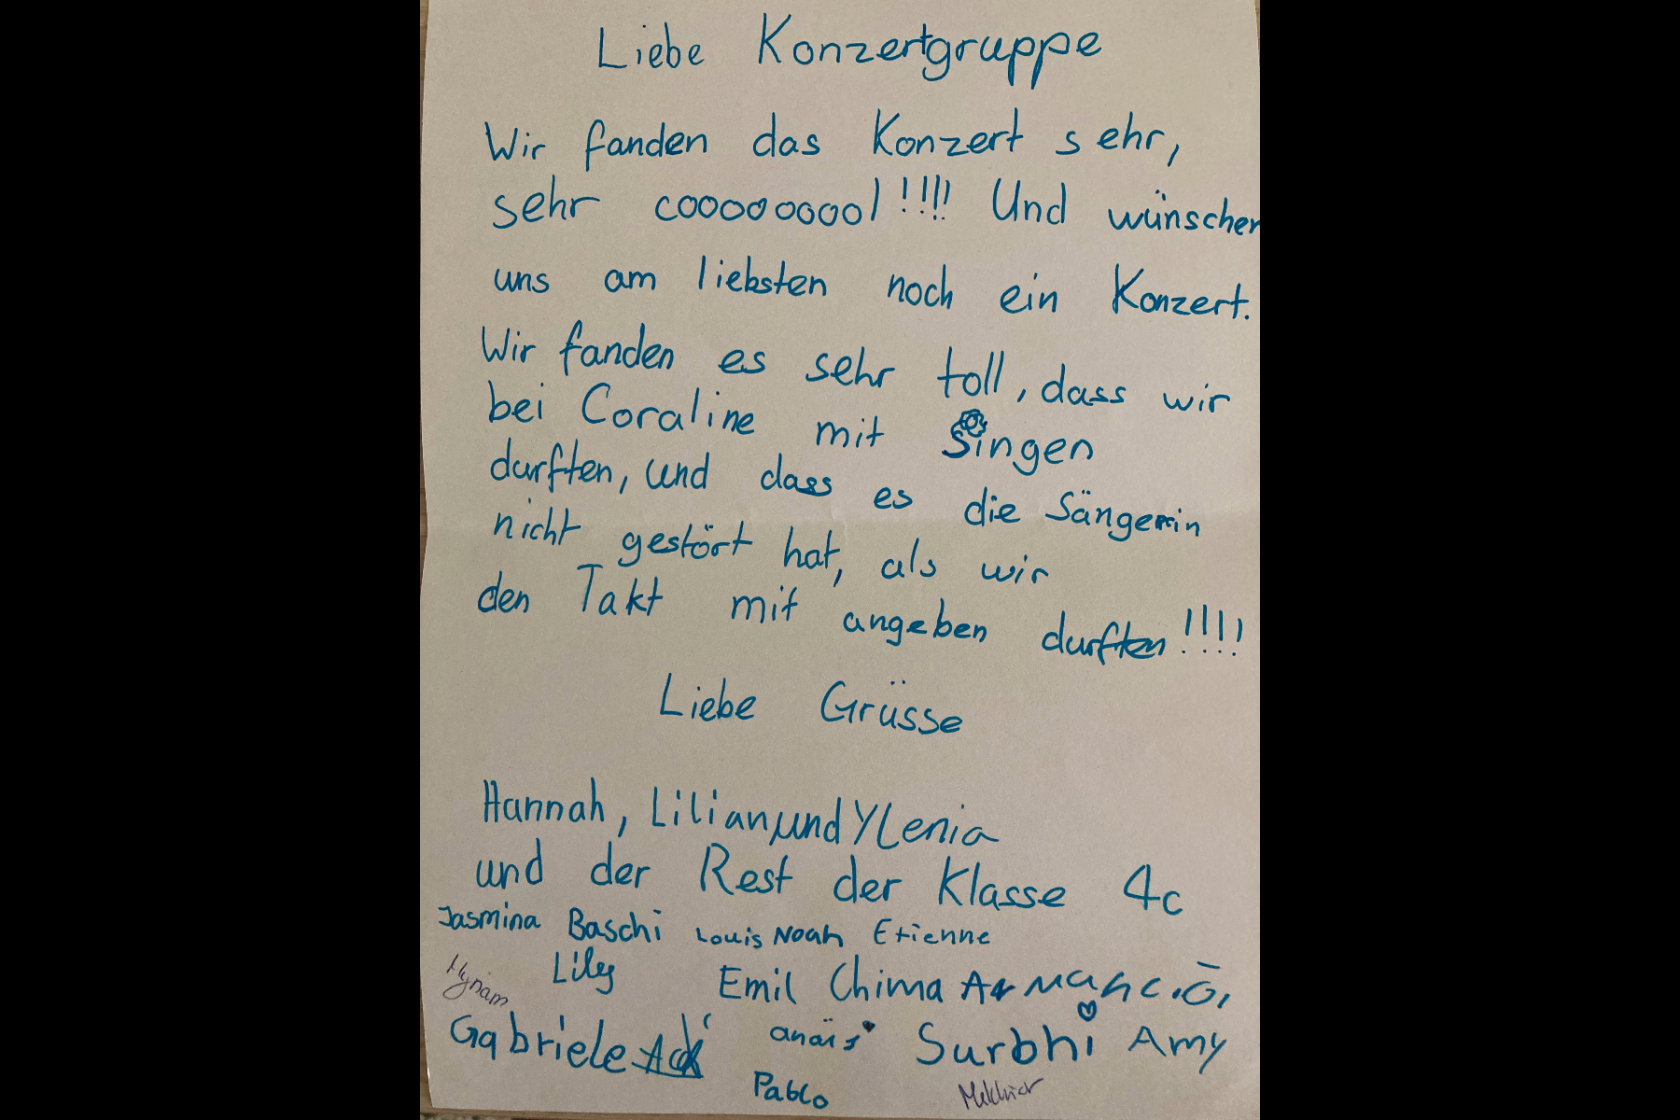 Liebe Konzertgruppe
Wir fanden das Konzert sehr,
sehr cooooooool!!!!! Und wünschen
uns am liebsten noch ein Konzert.
Wir fanden es sehr toll, dass wir
bei Coraline mit Singen
durften, und dass es die Sängerin
nicht gestört hat, als wir
den Takt mit angeben durften!!!!
Liebe Grüsse
Hannah, Lilian, und Ylenia
und der Rest der Klasse 4c
Jasmina Baschi Louis Noah Etienne
Myriam Lily Emil Chima
Gabriele anaïs Surbhi Amy
Pablo Melchior